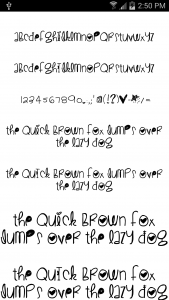 2:50 PM
abcdefghijklmnopqrstuvwxyz
abcdefghijklmnopqrstuvwxyz
1234567890
the quick brown fox jumps over
the lazy dog
the quick brown fox jumps over
the lazy dog
the quick brown fox
jumps over the lazy dog
the quick brown fox
jumps over the lazy dog